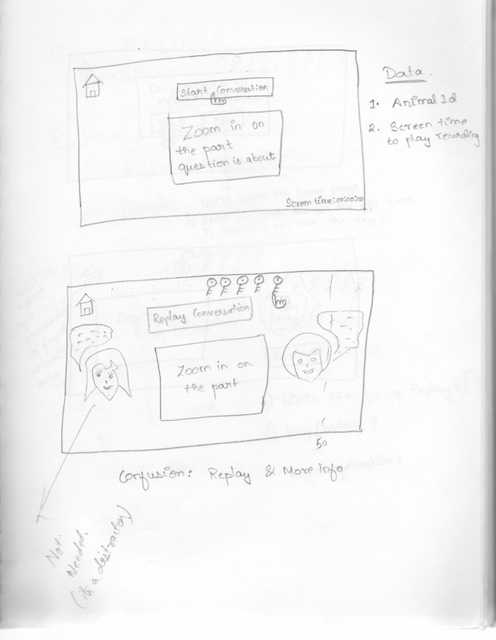 Start Conversation
Zoom in on
the part
question is about
Screen time: 00:00:00
Data
1. Animal Id
2. Screen time
to play recording
Replay Conversation
Zoom in on
the part
50
Confusion: Replay & More info
Not
Needed.
(it's a distractor)